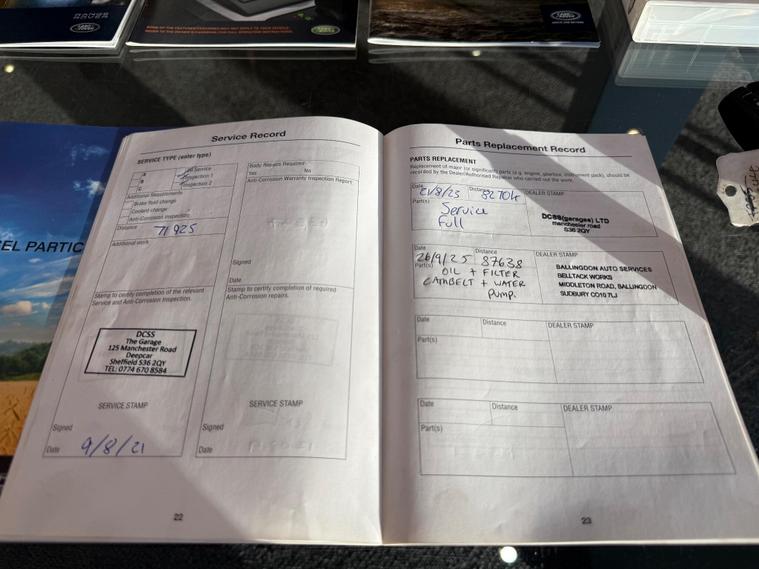 LAND ROVER
EL PARTIC
Service Record
SERVICE TYPE (enter type)
A
B
C
Oil Service
Inspection 1
Inspection 2
Additional Requirements
Brake fluid change
Coolant change
Anti-Corrosion Inspection
Distance 71925
Additional work
Body Repairs Required
Yes No
Anti-Corrosion Warranty Inspection Report
Signed
Date
Stamp to certify completion of the relevant
Service and Anti-Corrosion Inspection.
DCSS
The Garage
125 Manchester Road
Deepcar
Sheffield S36 2QY
TEL: 0774 670 8584
SERVICE STAMP
Signed
Date 9/8/21
Stamp to certify completion of required
Anti-Corrosion repairs.
SERVICE STAMP
Signed
Date
22
Parts Replacement Record
PARTS REPLACEMENT
Replacement of major (or significant) parts (e.g. engine, gearbox, instrument pack), should be
recorded by the Dealer/Authorised Repairer who carried out the work.
Date 21/8/23 Distance DEALER STAMP
Part(s) Service
Full
DCSS(garages) LTD
manchester road
S36 2QY
Date 26/9/25 Distance 87638 DEALER STAMP
Part(s) OIL + FILTER
CAMBELT + WATER
PUMP.
BALLINGDON AUTO SERVICES
BELLTACK WORKS
MIDDLETON ROAD, BALLINGDON
SUDBURY CO10 7LJ
Date Distance DEALER STAMP
Part(s)
Date Distance DEALER STAMP
Part(s)
23